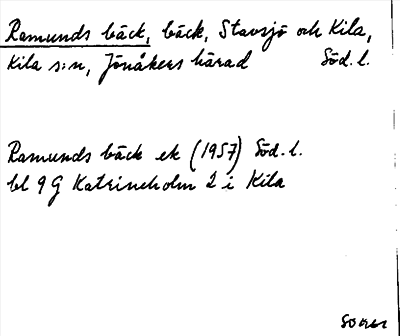 Ramunds bäck, bäck, Stavsjö och Kila,
Kila s:n, Jönåkers härad Söd.l.
Ramunds bäck ek (1957) Söd.l.
bl 9G Katrineholm 2 i Kila